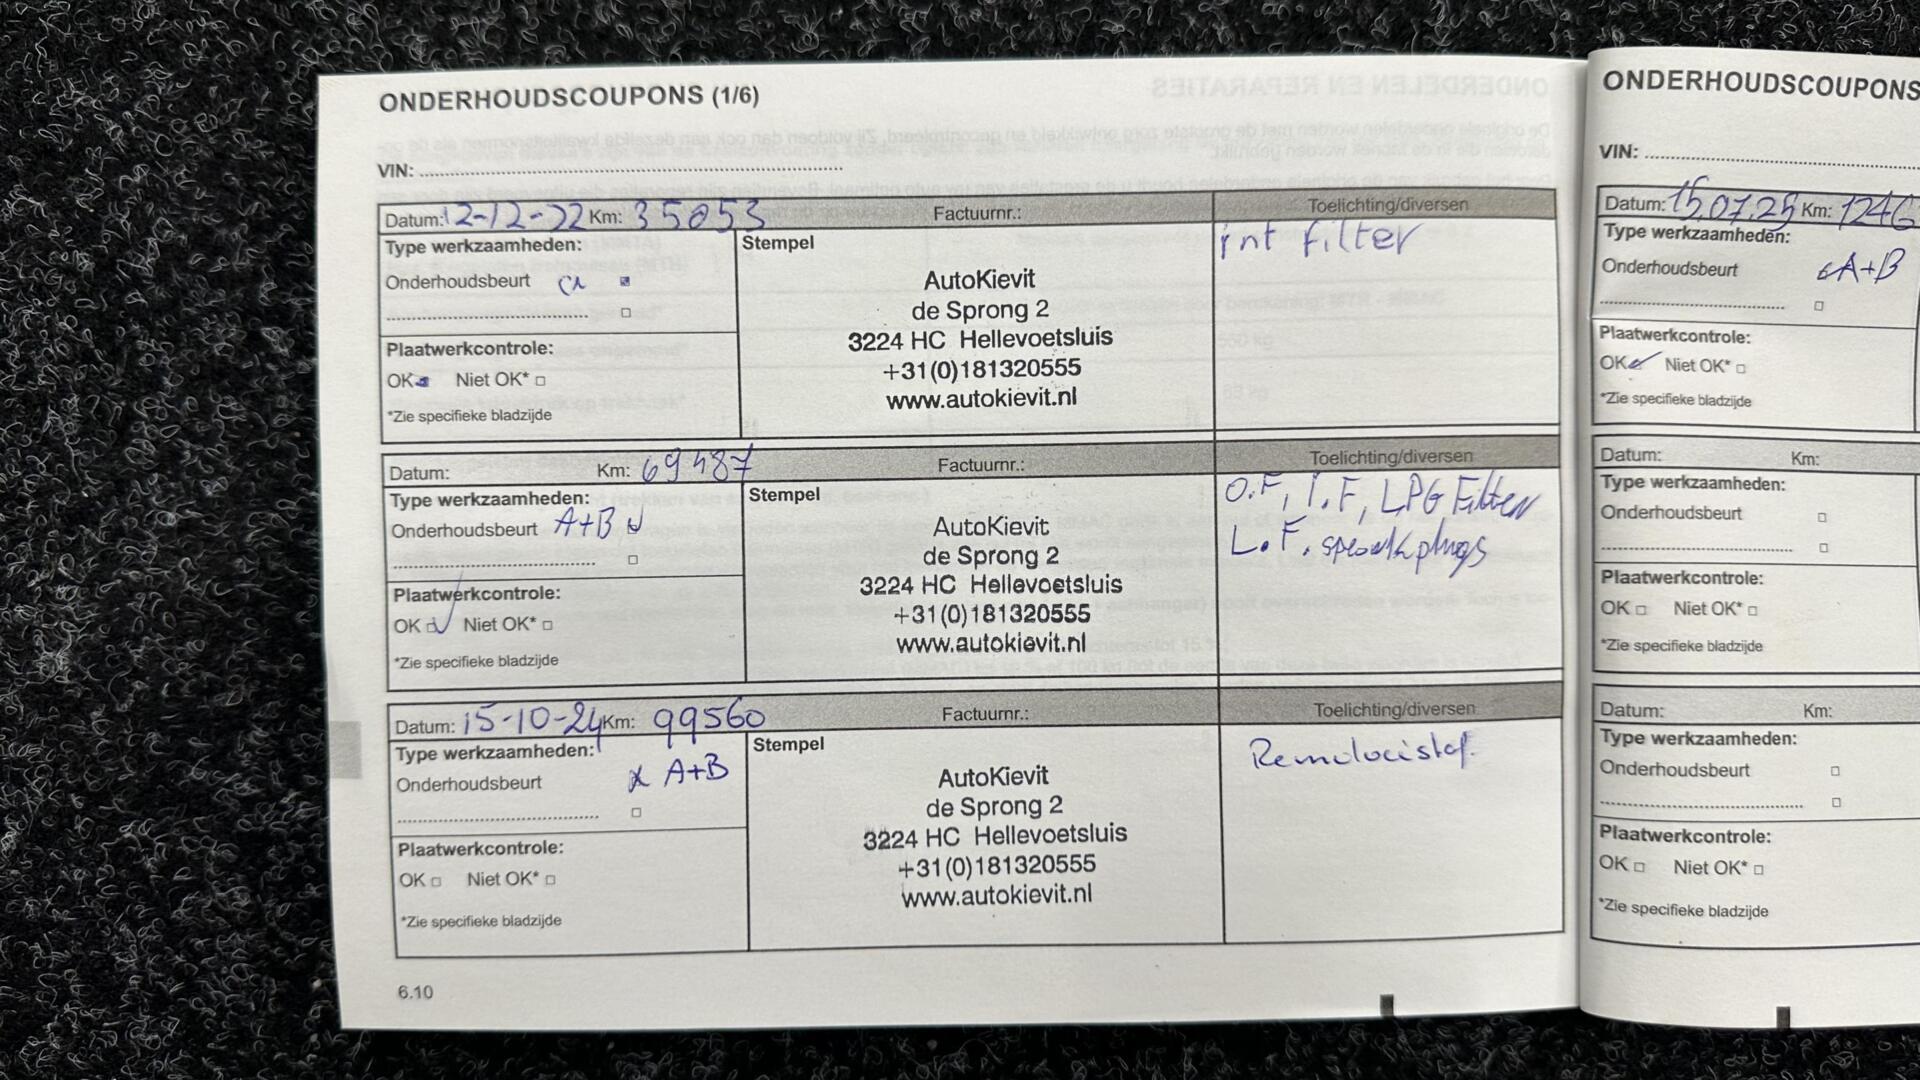 ONDERHOUDSCOUPONS (1/6)
VIN:
Datum: 12-12-22 Km: 35053 Factuurnr.: Toelichting/diversen
Type werkzaamheden: Stempel
int filter
Onderhoudsbeurt
Plaatwerkcontrole:
OK Niet OK*
*Zie specifieke bladzijde
AutoKievit
de Sprong 2
3224 HC Hellevoetsluis
+31(0)181320555
www.autokievit.nl
Datum: Km: 69487 Factuurnr.: Toelichting/diversen
Type werkzaamheden: Stempel
Onderhoudsbeurt A+B
Plaatwerkcontrole:
OK Niet OK*
*Zie specifieke bladzijde
AutoKievit
de Sprong 2
3224 HC Hellevoetsluis
+31(0)181320555
www.autokievit.nl
O.F, I.F, LPG Filter
L.F.
Datum: 15-10-24 Km: 99560 Factuurnr.: Toelichting/diversen
Type werkzaamheden: Stempel
Onderhoudsbeurt x A+B
Plaatwerkcontrole:
OK Niet OK*
*Zie specifieke bladzijde
AutoKievit
de Sprong 2
3224 HC Hellevoetsluis
+31(0)181320555
www.autokievit.nl
6.10
ONDERHOUDSCOUPONS
VIN:
Datum: 15.07.25 Km: 1246
Type werkzaamheden:
Onderhoudsbeurt A+B
Plaatwerkcontrole:
OK Niet OK*
*Zie specifieke bladzijde
Datum: Km:
Type werkzaamheden:
Onderhoudsbeurt
Plaatwerkcontrole:
OK Niet OK*
*Zie specifieke bladzijde
Datum: Km:
Type werkzaamheden:
Onderhoudsbeurt
Plaatwerkcontrole:
OK Niet OK*
*Zie specifieke bladzijde